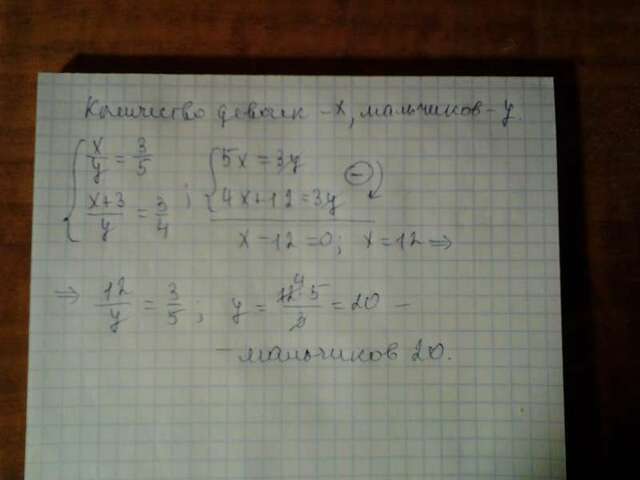 Количество девочек -x, мальчиков- y.
{ x/y = 3/5 ; { 5x = 3y
{ (x+3)/y = 3/4 ; { 4x+12=3y (-)
x-12=0; x=12 ⇒
⇒ 12/y = 3/5 ; y = 12·5/3 = 20 - 4
- мальчиков 20.